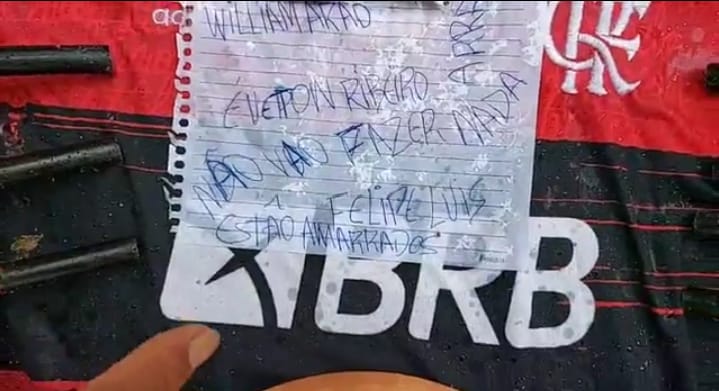 WILLIAM ARÃO
ÉVETON RIBEIRO
NÃO VÃO FAZER NADA
FELIPE LUIS
ESTÃO AMARRADOS
BRB